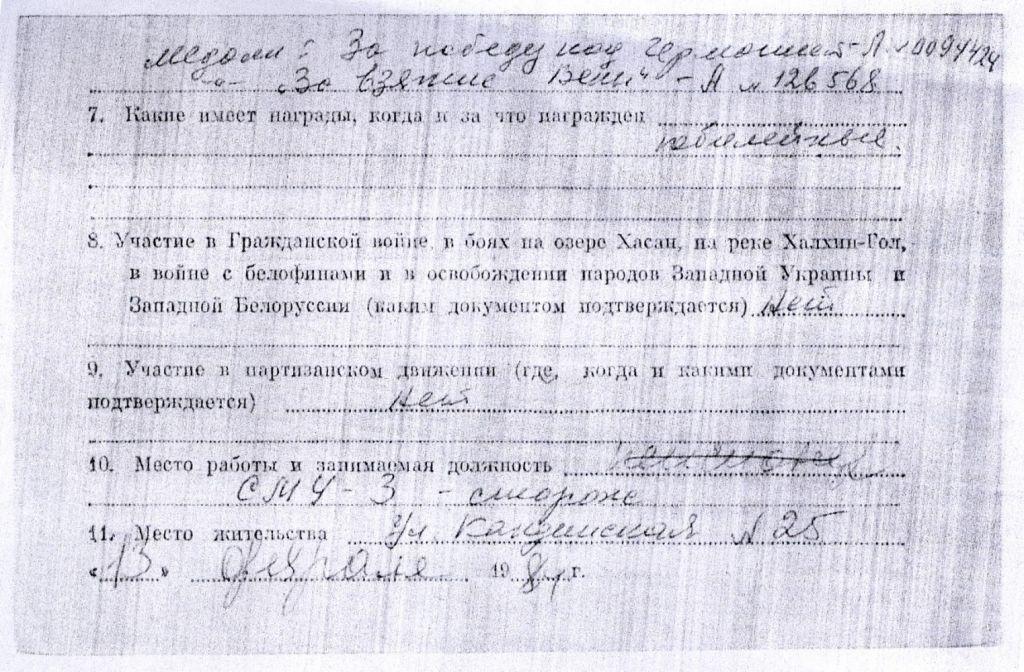 медали: За победу над Германией - А № 0094424
-"- "За взятие Вены" - А № 126568
7. Какие имеет награды, когда и за что награжден
юбилейные.
8. Участие в Гражданской войне, в боях на озере Хасан, на реке Халхин-Гол,
в войне с белофинами и в освобождении народов Западной Украины и
Западной Белоруссии (каким документом подтверждается) Нет
9. Участие в партизанском движении (где, когда и какими документами
подтверждается) Нет
10. Место работы и занимаемая должность
СМУ-3 - сторож
11. Место жительства ул. № 25
«13» февраля 198 г.